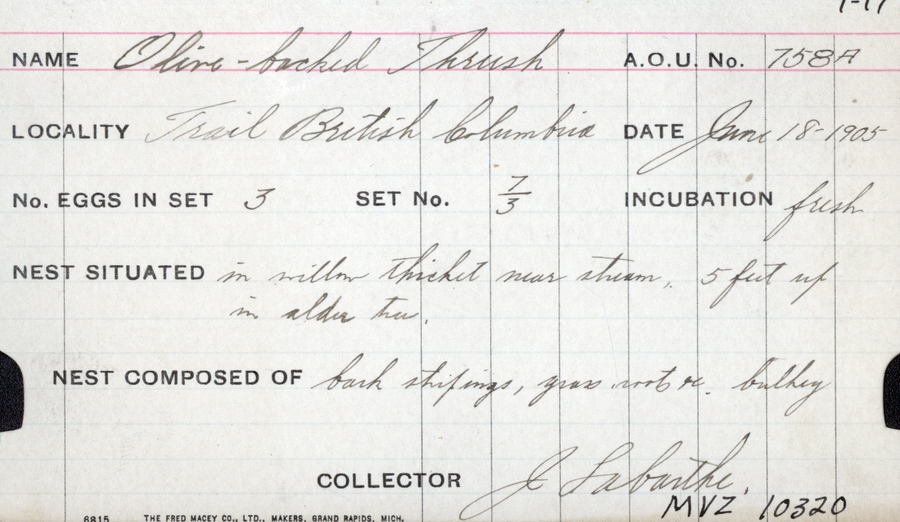 NAME Olive-backed Thrush A.O.U. No. 758A
LOCALITY Trail British Columbia DATE June 18-1905
No. EGGS IN SET 3 SET No. 7/3 INCUBATION fresh
NEST SITUATED in willow thicket near stream, 5 feet up
in alder tree.
NEST COMPOSED OF bark stripings, grass roots &c. bulkey
COLLECTOR J Labarthe.
MVZ 10320
6815 THE FRED MACEY CO., LTD., MAKERS, GRAND RAPIDS, MICH.